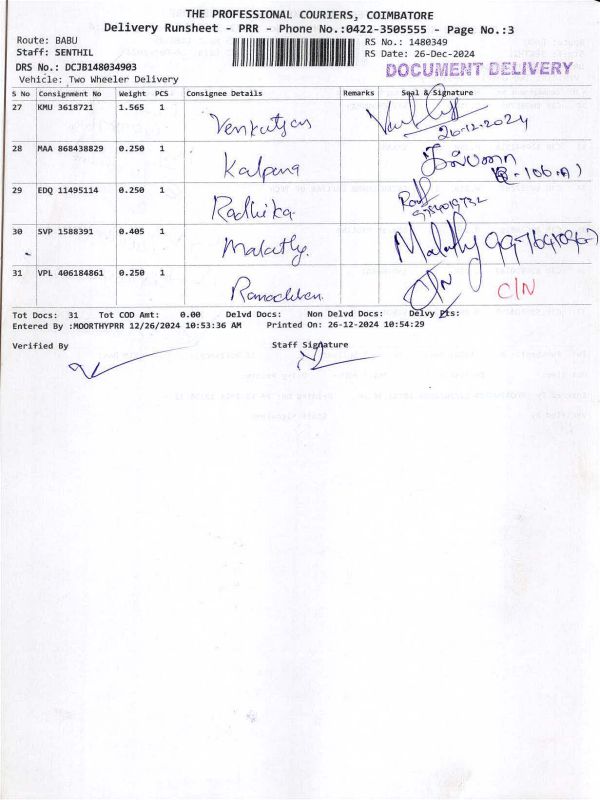 THE PROFESSIONAL COURIERS, COIMBATORE
Delivery Runsheet - PRR - Phone No.:0422-3505555 - Page No.:3
Route: BABU RS No.: 1480349
Staff: SENTHIL RS Date: 26-Dec-2024
DRS No.: DCJB148034903 DOCUMENT DELIVERY
Vehicle: Two Wheeler Delivery
S No Consignment No Weight PCS Consignee Details Remarks Seal & Signature
27 KMU 3618721 1.565 1 Venkatsan
26-12-2024
28 MAA 868438829 0.250 1 Kalpana கல்பனா
29 EDQ 11495114 0.250 1 Radhika
30 SVP 1588391 0.405 1 Malathy. Malathy
31 VPL 406184861 0.250 1 C/N C/N
Tot Docs: 31 Tot COD Amt: 0.00 Delvd Docs: Non Delvd Docs: Delvy Pts:
Entered By :MOORTHYPRR 12/26/2024 10:53:36 AM Printed On: 26-12-2024 10:54:29
Verified By Staff Signature